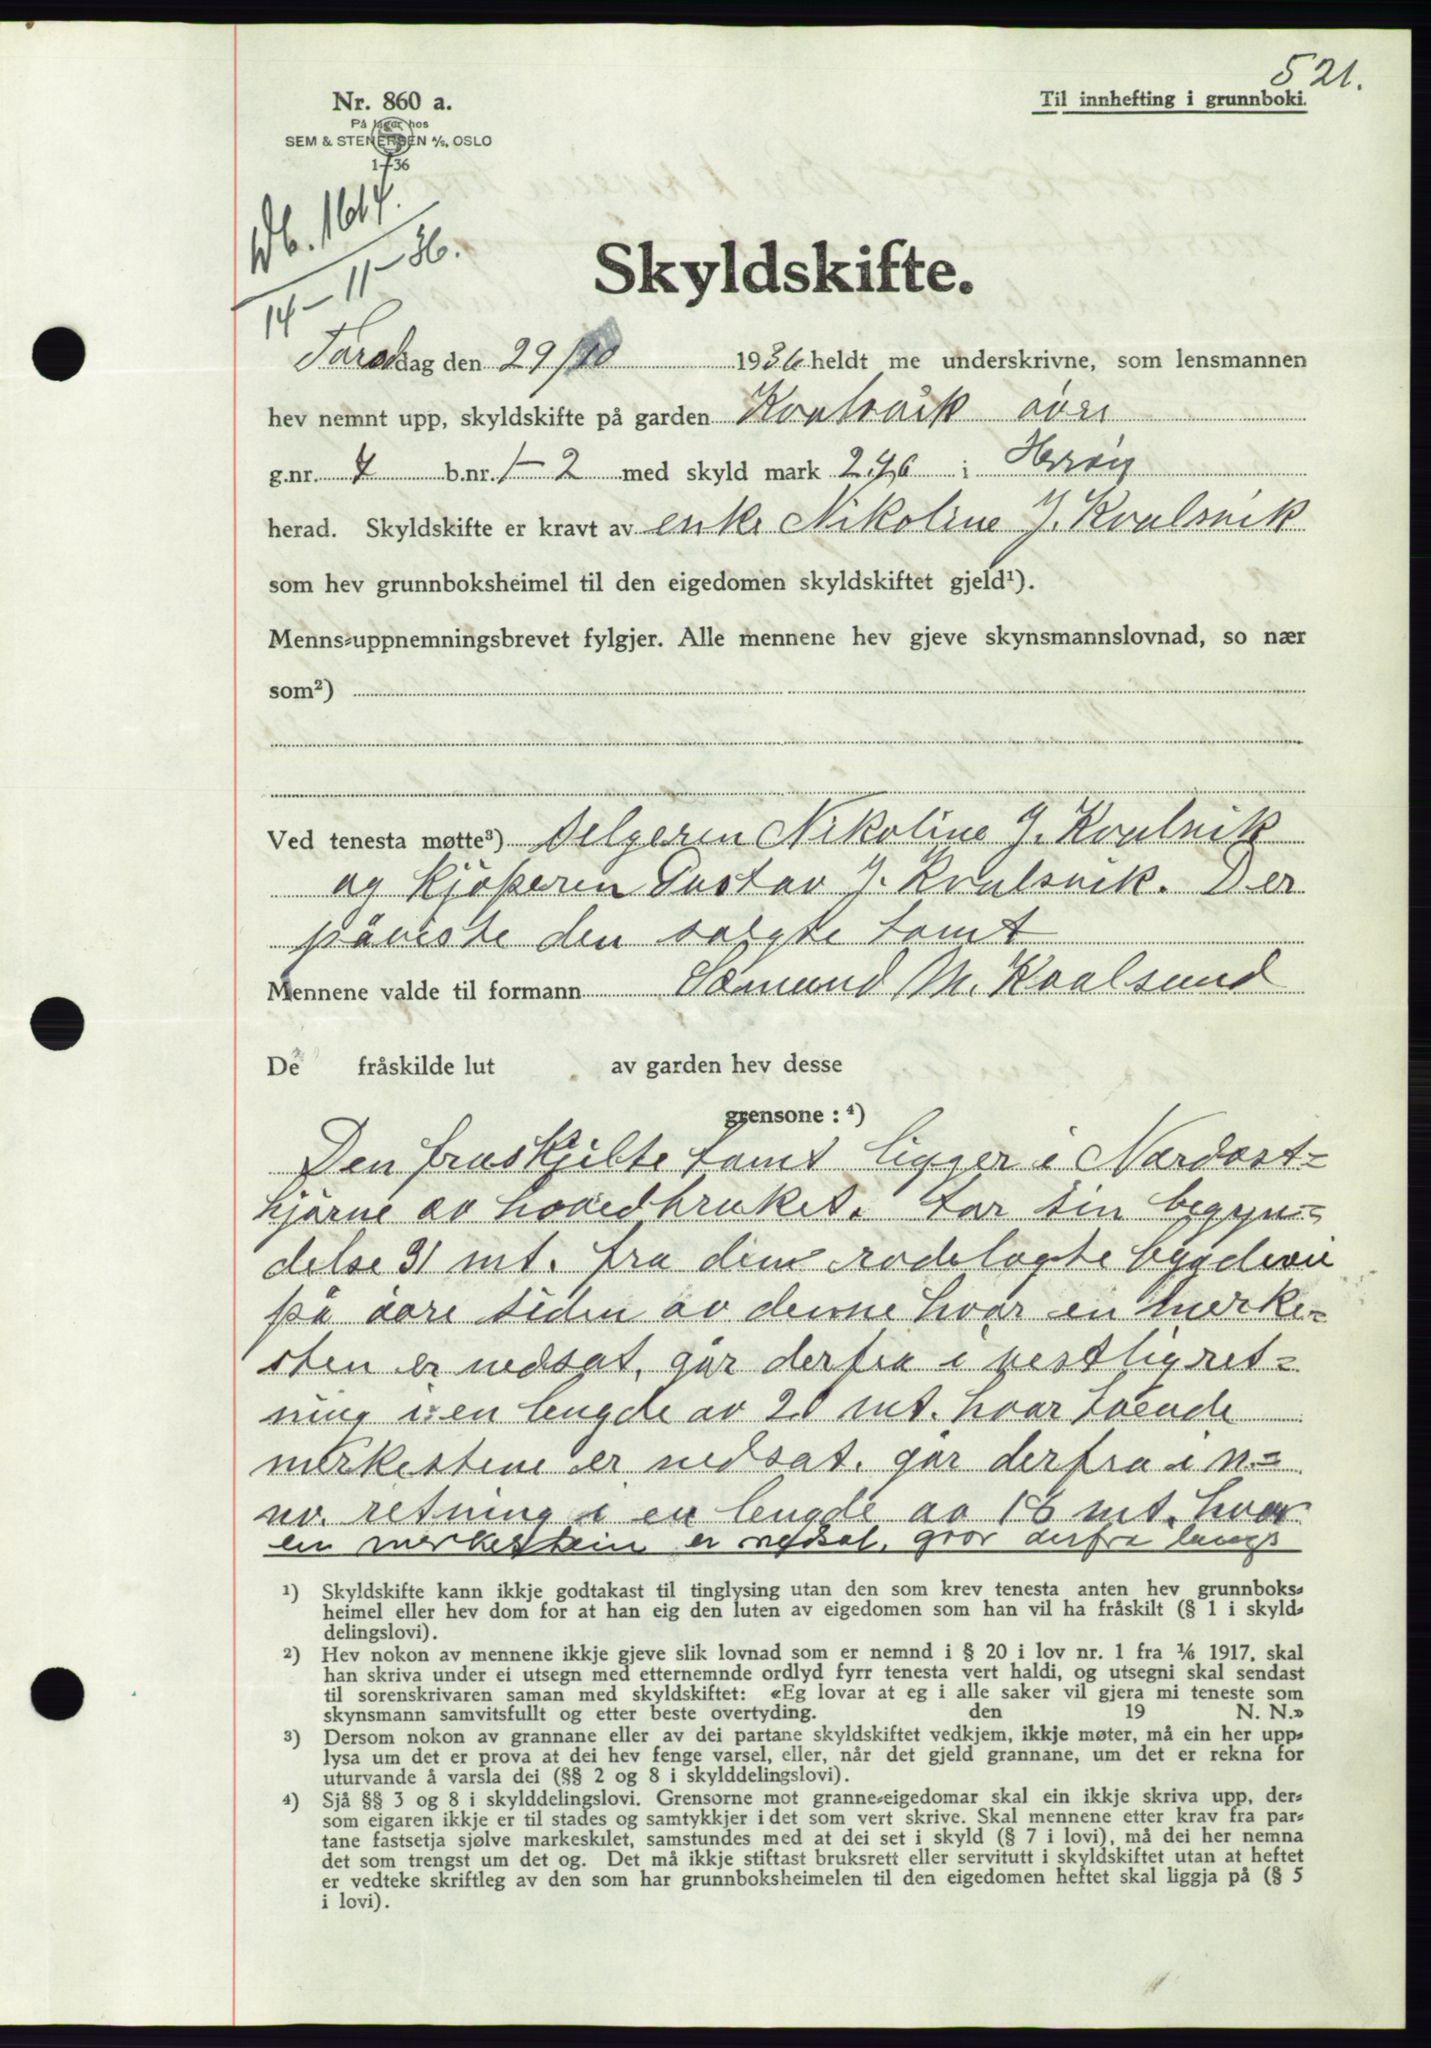 521.
Nr. 860 a.
På lager hos
SEM & STENERSEN A/S, OSLO
1-7-36
Til innhefting i grunnboki.
Db. 1614.
14-11-36.
Skyldskifte.
Torsdag den 29/10 1936 heldt me underskrivne, som lensmannen
hev nemnt upp, skyldskifte på garden Kvalsvik øvre
g.nr. 4 b.nr. 1-2 med skyld mark 2.46 i Herøy
herad. Skyldskifte er kravt av enke Nikoline J. Kvalsvik
som hev grunnboksheimel til den eigedomen skyldskiftet gjeld¹).
Menns-uppnemningsbrevet fylgjer. Alle mennene hev gjeve skynsmannslovnad, so nær
som²)
Ved tenesta møtte³) Selgeren Nikoline J. Kvalsvik
og kjøperen Gustav J. Kvalsvik. Der
påviste den solgte tomt
Mennene valde til formann Sæmund M. Kvalsund
De fråskilde lut av garden hev desse
grensone: ⁴)
Den fraskjilte tomt ligger i Nordost-
hjørne av hovedbruket. tar sin begyn-
delse 31 mt. fra den rodelagte bygdevei
på øvre siden av denne hvor en merke-
sten er nedsat, går derfra i vestligret-
ning i en lengde av 20 mt. hvor tvende
merkestene er nedsat. går derfra i n.-
nv. retning i en lengde av 16 mt. hvor
en merkestein er nedsat, går derfra langs
¹) Skyldskifte kann ikkje godtakast til tinglysing utan den som krev tenesta anten hev grunnboks-
heimel eller hev dom for at han eig den luten av eigedomen som han vil ha fråskilt (§ 1 i skyld-
delingslovi).
²) Hev nokon av mennene ikkje gjeve slik lovnad som er nemnd i § 20 i lov nr. 1 fra 1/6 1917, skal
han skriva under ei utsegn med etternemnde ordlyd fyrr tenesta vert haldi, og utsegni skal sendast
til sorenskrivaren saman med skyldskiftet: «Eg lovar at eg i alle saker vil gjera mi teneste som
skynsmann samvitsfullt og etter beste overtyding. den 19 N. N.»
³) Dersom nokon av grannane eller av dei partane skyldskiftet vedkjem, ikkje møter, må ein her upp-
lysa um det er prova at dei hev fenge varsel, eller, når det gjeld grannane, um det er rekna for
uturvande å varsla dei (§§ 2 og 8 i skylddelingslovi).
⁴) Sjå §§ 3 og 8 i skylddelingslovi. Grensorne mot granne-eigedomar skal ein ikkje skriva upp, der-
som eigaren ikkje er til stades og samtykkjer i det som vert skrive. Skal mennene etter krav fra par-
tane fastsetja sjølve markeskilet, samstundes med at dei set i skyld (§ 7 i lovi), må dei her nemna
det som trengst um det og. Det må ikkje stiftast bruksrett eller servitutt i skyldskiftet utan at heftet
er vedteke skriftleg av den som har grunnboksheimelen til den eigedomen heftet skal liggja på (§ 5
i lovi).